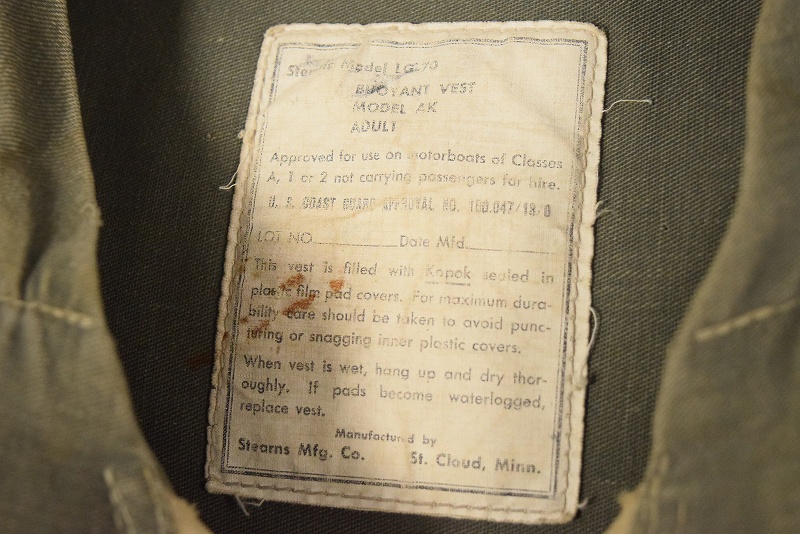 Stearns Model LG270
BUOYANT VEST
MODEL AK
ADULT
Approved for use on motorboats of Classes
A, 1 or 2 not carrying passengers for hire.
U. S. COAST GUARD APPROVAL NO. 160.047/18/0
LOT NO. Date Mfd.
This vest is filled with Kapok sealed in
plastic film pad covers. For maximum dura-
bility care should be taken to avoid punc-
turing or snagging inner plastic covers.
When vest is wet, hang up and dry thor-
oughly. If pads become waterlogged,
replace vest.
Manufactured by
Stearns Mfg. Co. St. Cloud, Minn.